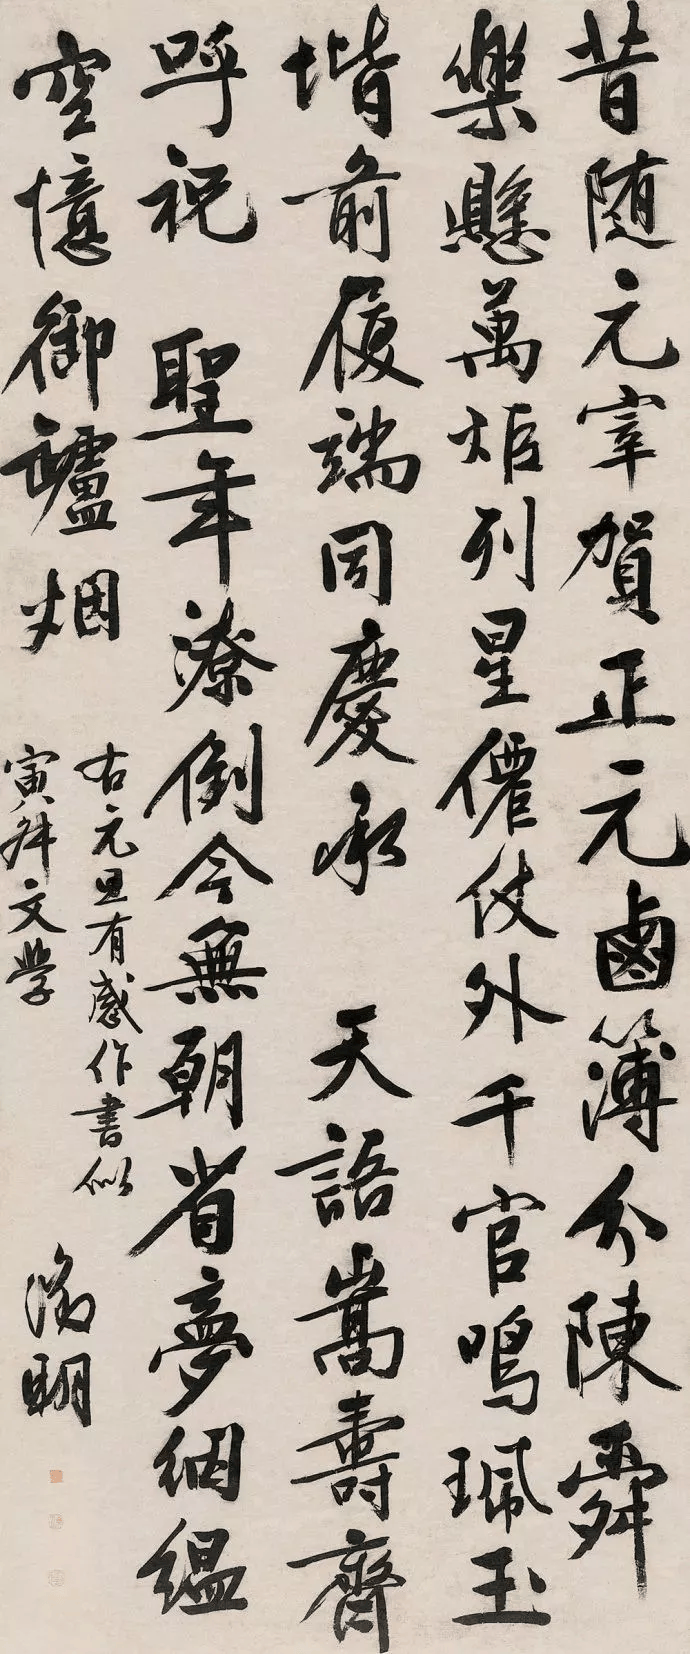 昔随元宰賀正元鹵簿分陳舜
樂懸萬炬列星僊仗外千官鳴珮玉
堦前履端同慶承 天語嵩壽齊
呼祝 聖年潦倒今無朝省夢絪縕
空憶御罏烟
右元旦有感作書似
寅升文學
徵明